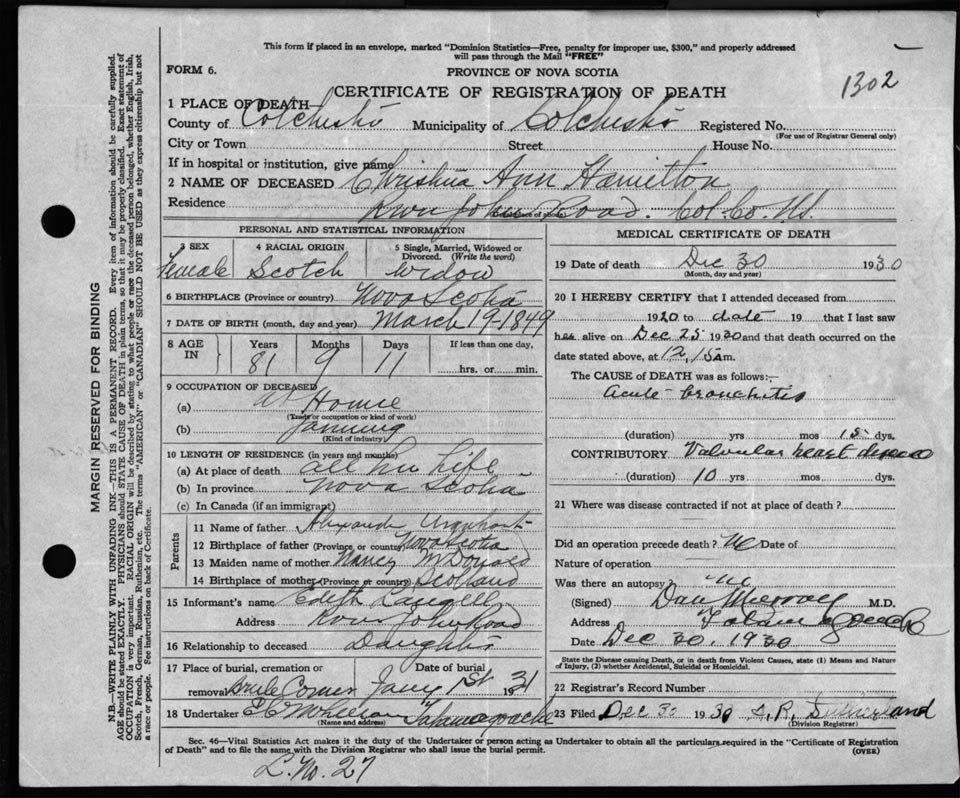 This form if placed in an envelope, marked "Dominion Statistics—Free, penalty for improper use, $300," and properly addressed
will pass through the Mail "FREE"
FORM 6.
PROVINCE OF NOVA SCOTIA
1302
CERTIFICATE OF REGISTRATION OF DEATH
1 PLACE OF DEATH
County of Colchester Municipality of Colchester Registered No.
(For use of Registrar General only)
City or Town Street House No.
If in hospital or institution, give name
2 NAME OF DECEASED Christina Ann Hamilton
Residence River John Road. Col. Co. N.S.
PERSONAL AND STATISTICAL INFORMATION
3 SEX 4 RACIAL ORIGIN 5 Single, Married, Widowed or Divorced. (Write the word)
Female Scotch widow
6 BIRTHPLACE (Province or country) Nova Scotia
7 DATE OF BIRTH (month, day and year) March 19-1849
8 AGE IN Years Months Days If less than one day,
81 9 11 hrs. or min.
9 OCCUPATION OF DECEASED
(a) At Home
(Trade or occupation or kind of work)
(b) farming
(Kind of industry)
10 LENGTH OF RESIDENCE (in years and months)
(a) At place of death all her life
(b) In province Nova Scotia
(c) In Canada (if an immigrant)
Parents
11 Name of father Alexander Urquhart
12 Birthplace of father (Province or country) Nova Scotia
13 Maiden name of mother Nancy McDonald
14 Birthplace of mother (Province or country) Scotland
15 Informant's name Edith Langell
Address River John Road
16 Relationship to deceased Daughter
17 Place of burial, cremation or Date of burial
removal Brule Corner Jany 1st 1931
18 Undertaker Tatamagouche
(Name and address)
MEDICAL CERTIFICATE OF DEATH
19 Date of death Dec 30 1930
(Month, day and year)
20 I HEREBY CERTIFY that I attended deceased from
1920 to date 19 that I last saw
h er alive on Dec 25 1930 and that death occurred on the
date stated above, at 12.15 A m.
The CAUSE of DEATH was as follows:—
Acute bronchitis
(duration) yrs mos 15 dys.
CONTRIBUTORY Valvular heart disease
(duration) 10 yrs mos dys.
21 Where was disease contracted if not at place of death?
Did an operation precede death? No Date of
Nature of operation
Was there an autopsy No
(Signed) Dan Murray M.D.
Address Tatamagouche
Date Dec 30. 1930
State the Disease causing Death, or in death from Violent Causes, state (1) Means and Nature
of Injury, (2) whether Accidental, Suicidal or Homicidal.
22 Registrar's Record Number
23 Filed Dec 30 1930 A. R. Sutherland
(Division Registrar)
Sec. 46—Vital Statistics Act makes it the duty of the Undertaker or person acting as Undertaker to obtain all the particulars required in the "Certificate of Registration
of Death" and to file the same with the Division Registrar who shall issue the burial permit. (OVER)
L. No. 27
MARGIN RESERVED FOR BINDING
N.B.—WRITE PLAINLY WITH UNFADING INK—THIS IS A PERMANENT RECORD. Every item of information should be carefully supplied.
AGE should be stated EXACTLY. PHYSICIANS should STATE CAUSE OF DEATH in plain terms, so that it may be properly classified. Exact statement of
OCCUPATION is very important. RACIAL ORIGIN will be described by stating to what people or race the deceased person belonged, whether English, Irish,
Scotch, French, German, Russian, Ruthenian, etc. The terms "AMERICAN" or "CANADIAN" SHOULD NOT BE USED as they express citizenship but not
a race or people. See instructions on back of Certificate.